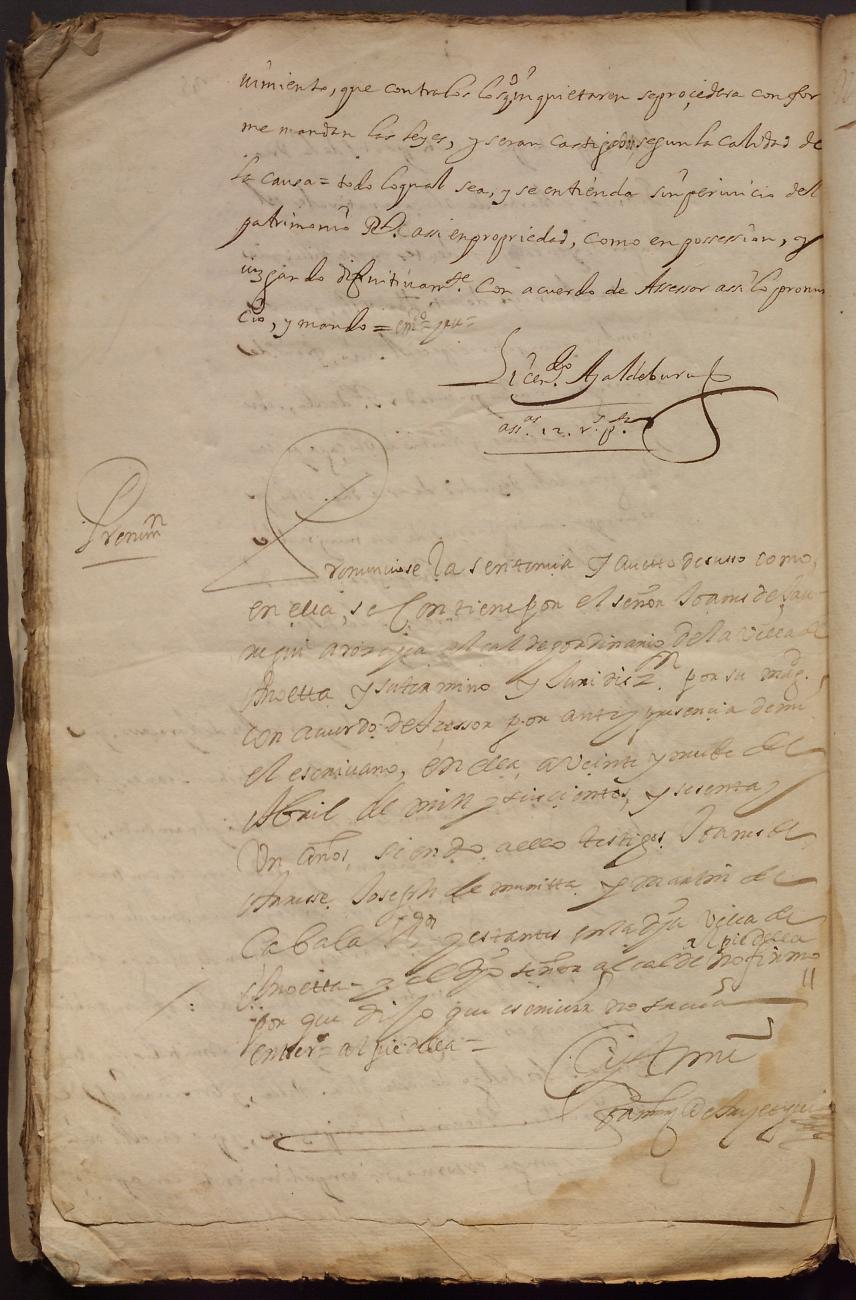 uimiento, que contra los los q inquietaren se procedera confor
me mandan las leyes, y seran castigados segun la calidad de
la causa = todo lo qual sea, y se entienda sin periuicio del
patrimonio Rl. assi en propriedad, como en possession, y
iuzgando difinitivamte. Con acuerdo de Assessor assi lo pronun
cio, y mando =
Licendo.
ass.as 12. rs.
Pronun
Pronunciose la sentencia y autto de suso como
en ella, se Contiene por el señor Joanes de Jau
regui alcalde ordinario de la Villa de
Anoetta y su termino y Juridiz.n por su magd.
con acuerdo de Asessor por ante y presencia de mi
el escriuano, en ella a veinte y nuebe de
Abril de mill y seiscientos, y sesenta y
Un años, siendo a ello testigos Joanes de
Joseph de y martin de
Cabala y estantes en la dha Villa de
al pie della
Anoetta - y el dho señor alcalde no firmo
por que dijo que escriuir no sauia
entrer.s al pie della =
Ante mi